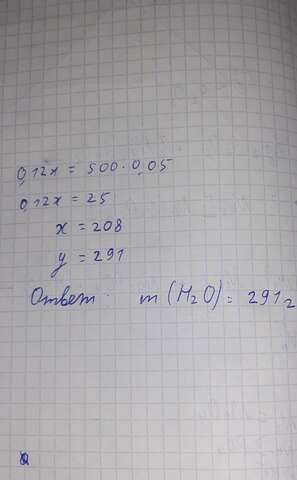 0,12x = 500 · 0,05
0,12x = 25
x = 208
y = 291
Ответ: m (H2O) = 291 г